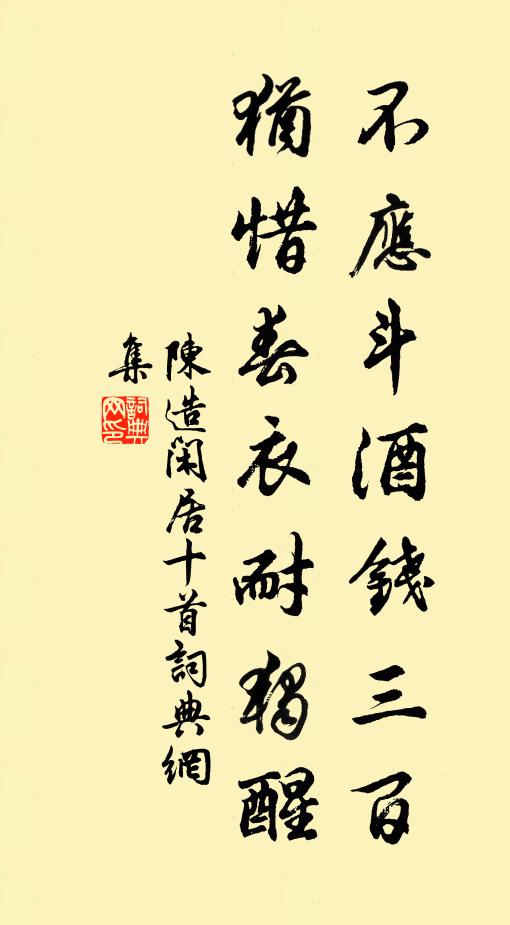 不應斗酒錢三百
猶惜春衣耐獨醒
陳造閑居十首詞典網
集
詞典網印